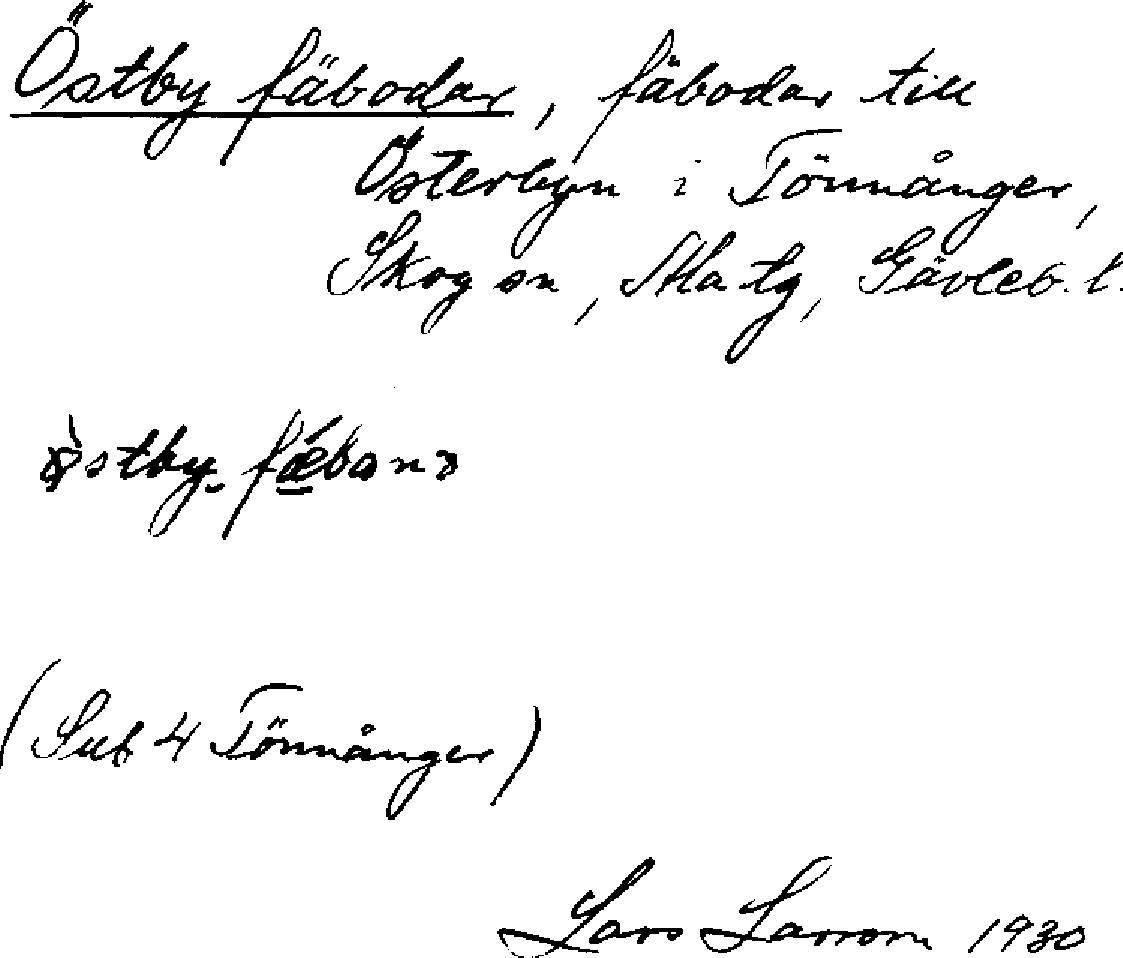 Östby fäbodar, fäbodar till
Österbyn i Tönnånger,
Skog sn, Ala tg, Gävleb. l.
fǽbonə
(Sub 4 Tönnånger)
Lars Larsson 1930